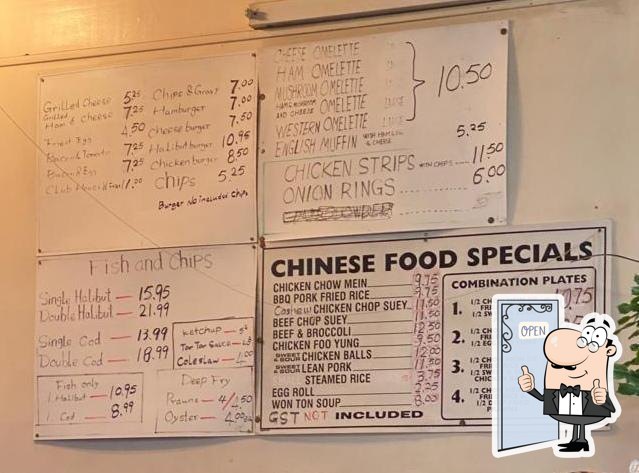 Grilled Cheese 5.25
Grilled
Ham & Cheese 7.25
Fried Egg 4.50
Bacon & Tomato 7.25
Bacon & Egg 7.25
Chips & Gravy 7.00
Hamburger 7.00
Cheeseburger 7.50
Halibut burger 10.95
Chicken burger 8.50
Chips 5.25
Burger No included Chips
CHEESE OMELETTE
HAM OMELETTE
MUSHROOM OMELETTE
HAM & MUSHROOM
AND CHEESE OMELETTE
WESTERN OMELETTE
10.50
ENGLISH MUFFIN WITH HAM & EGG
& CHEESE 5.25
CHICKEN STRIPS WITH CHIPS 11.50
ONION RINGS 6.00
Fish and Chips
Single Halibut — 15.95
Double Halibut — 21.99
Single Cod — 13.99
Double Cod — 18.99
Ketchup
Tar Tar Sauce
Coleslaw 1.00
Fish only
1 Halibut — 10.95
1 Cod — 8.99
Deep Fry
Prawns — 4/
Oyster —
CHINESE FOOD SPECIALS
CHICKEN CHOW MEIN 9.75
BBQ PORK FRIED RICE 9.75
Cashew CHICKEN CHOP SUEY 11.50
BEEF CHOP SUEY 11.50
BEEF & BROCCOLI 12.50
CHICKEN FOO YUNG 9.50
SWEET & SOUR CHICKEN BALLS 12.00
SWEET & SOUR LEAN PORK 11.50
STEAMED RICE 3.75
EGG ROLL 2.25
WON TON SOUP 8.00
GST NOT INCLUDED
COMBINATION PLATES
1. 1/2 CH
FRI
1/2 SW
2. 1/2 CH
FRI
1/2 EG
3. 1/2
FRI
1/2 SW
CHIC
4. 1/2 CH
FRI
OPEN